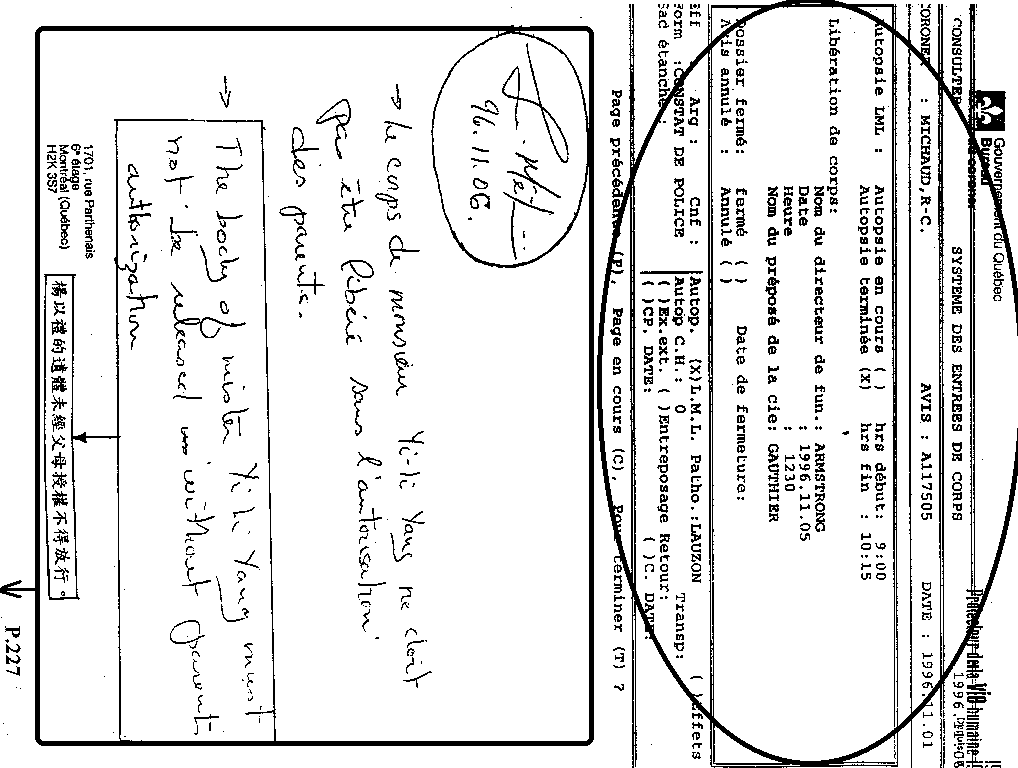 Gouvernement du Québec
Bureau du coroner
Protecteur de la vie humaine
CONSULTER SYSTEME DES ENTREES DE CORPS 1996.
CORONER : MICHAUD,R-C. AVIS : A117505 DATE : 1996.11.01
Autopsie LML : Autopsie en cours ( ) hrs début: 9:00
Autopsie terminée (X) hrs fin : 10:15
Libération de corps:
Nom du directeur de fun.: ARMSTRONG
Date : 1996.11.05
Heure : 1230
Nom du préposé de la cie: GAUTHIER
Dossier fermé: fermé ( ) Date de fermeture:
Avis annulé : Annulé ( )
Eff Arg : Cnf : Autop. (X)L.M.L. Patho.:LAUZON Transp: ( )Effets
Form :CONSTAT DE POLICE Autop C.H.: 0
Sad étanche : ( )Ex.ext. ( )Entreposage Retour:
( )CP. DATE: ( )C. DATE:
Page précédente (P), Page en cours (C), Pour terminer (T) ?
96.11.06.
→ Le corps de monsieur Yi-Li Yang ne doit
pas être libéré sans l'autorisation
des parents.
→ The body of mister Yi Li Yang must
not be released without parents
authorization
1701, rue Parthenais
6e étage
Montréal (Québec)
H2K 3S7
楊以禮的遺體未經父母授權不得放行。
P.227